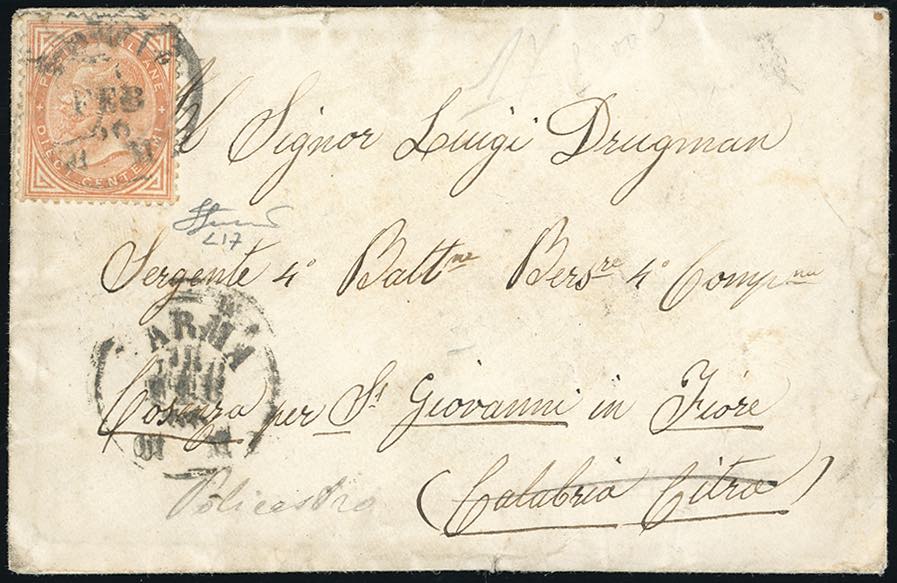 POSTE ITALIANE
FEB
66
DIECI CENTESIMI
Al Signor Luigi Drugman
L17
Sergente 4° Batt.ne Bers.re 4° Comp.nia
PARMA
Cosenza per S.t Giovanni in Fiore
Policastro
(Calabria Citra)